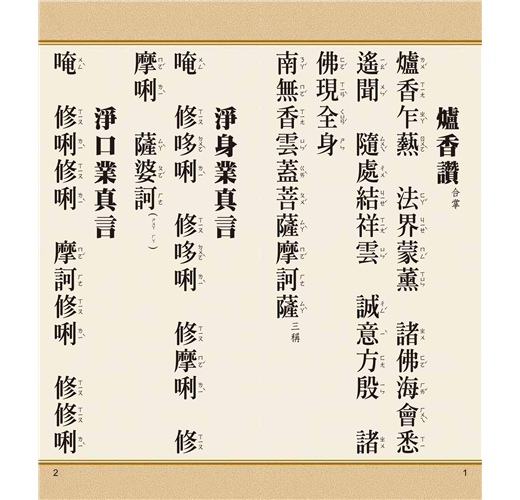 爐香讚 合掌
爐香乍爇　法界蒙薰　諸佛海會悉
遙聞　隨處結祥雲　誠意方殷　諸
佛現全身
南無香雲蓋菩薩摩訶薩 三稱
淨身業真言
唵　修哆唎　修哆唎　修摩唎　修
摩唎　薩婆訶
淨口業真言
唵　修唎修唎　摩訶修唎　修修唎
1
2